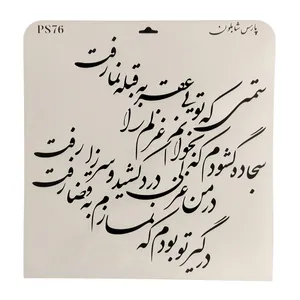 PS76
پارس شابلون
سمتی که تویی عقربه قبله نما رفت
سجاده گشودم که بخوانم غزلم را
در من غزلی درد کشید و سر زا رفت
درگیر تو بودم که نمازم به قضا رفت